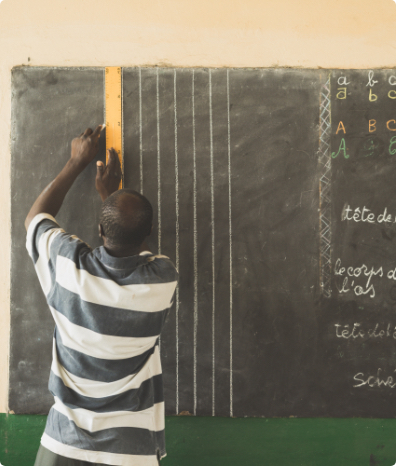 a b c
a b c
A B C
A B C
tête de l
le corps d
l'os
tête de l
Sche